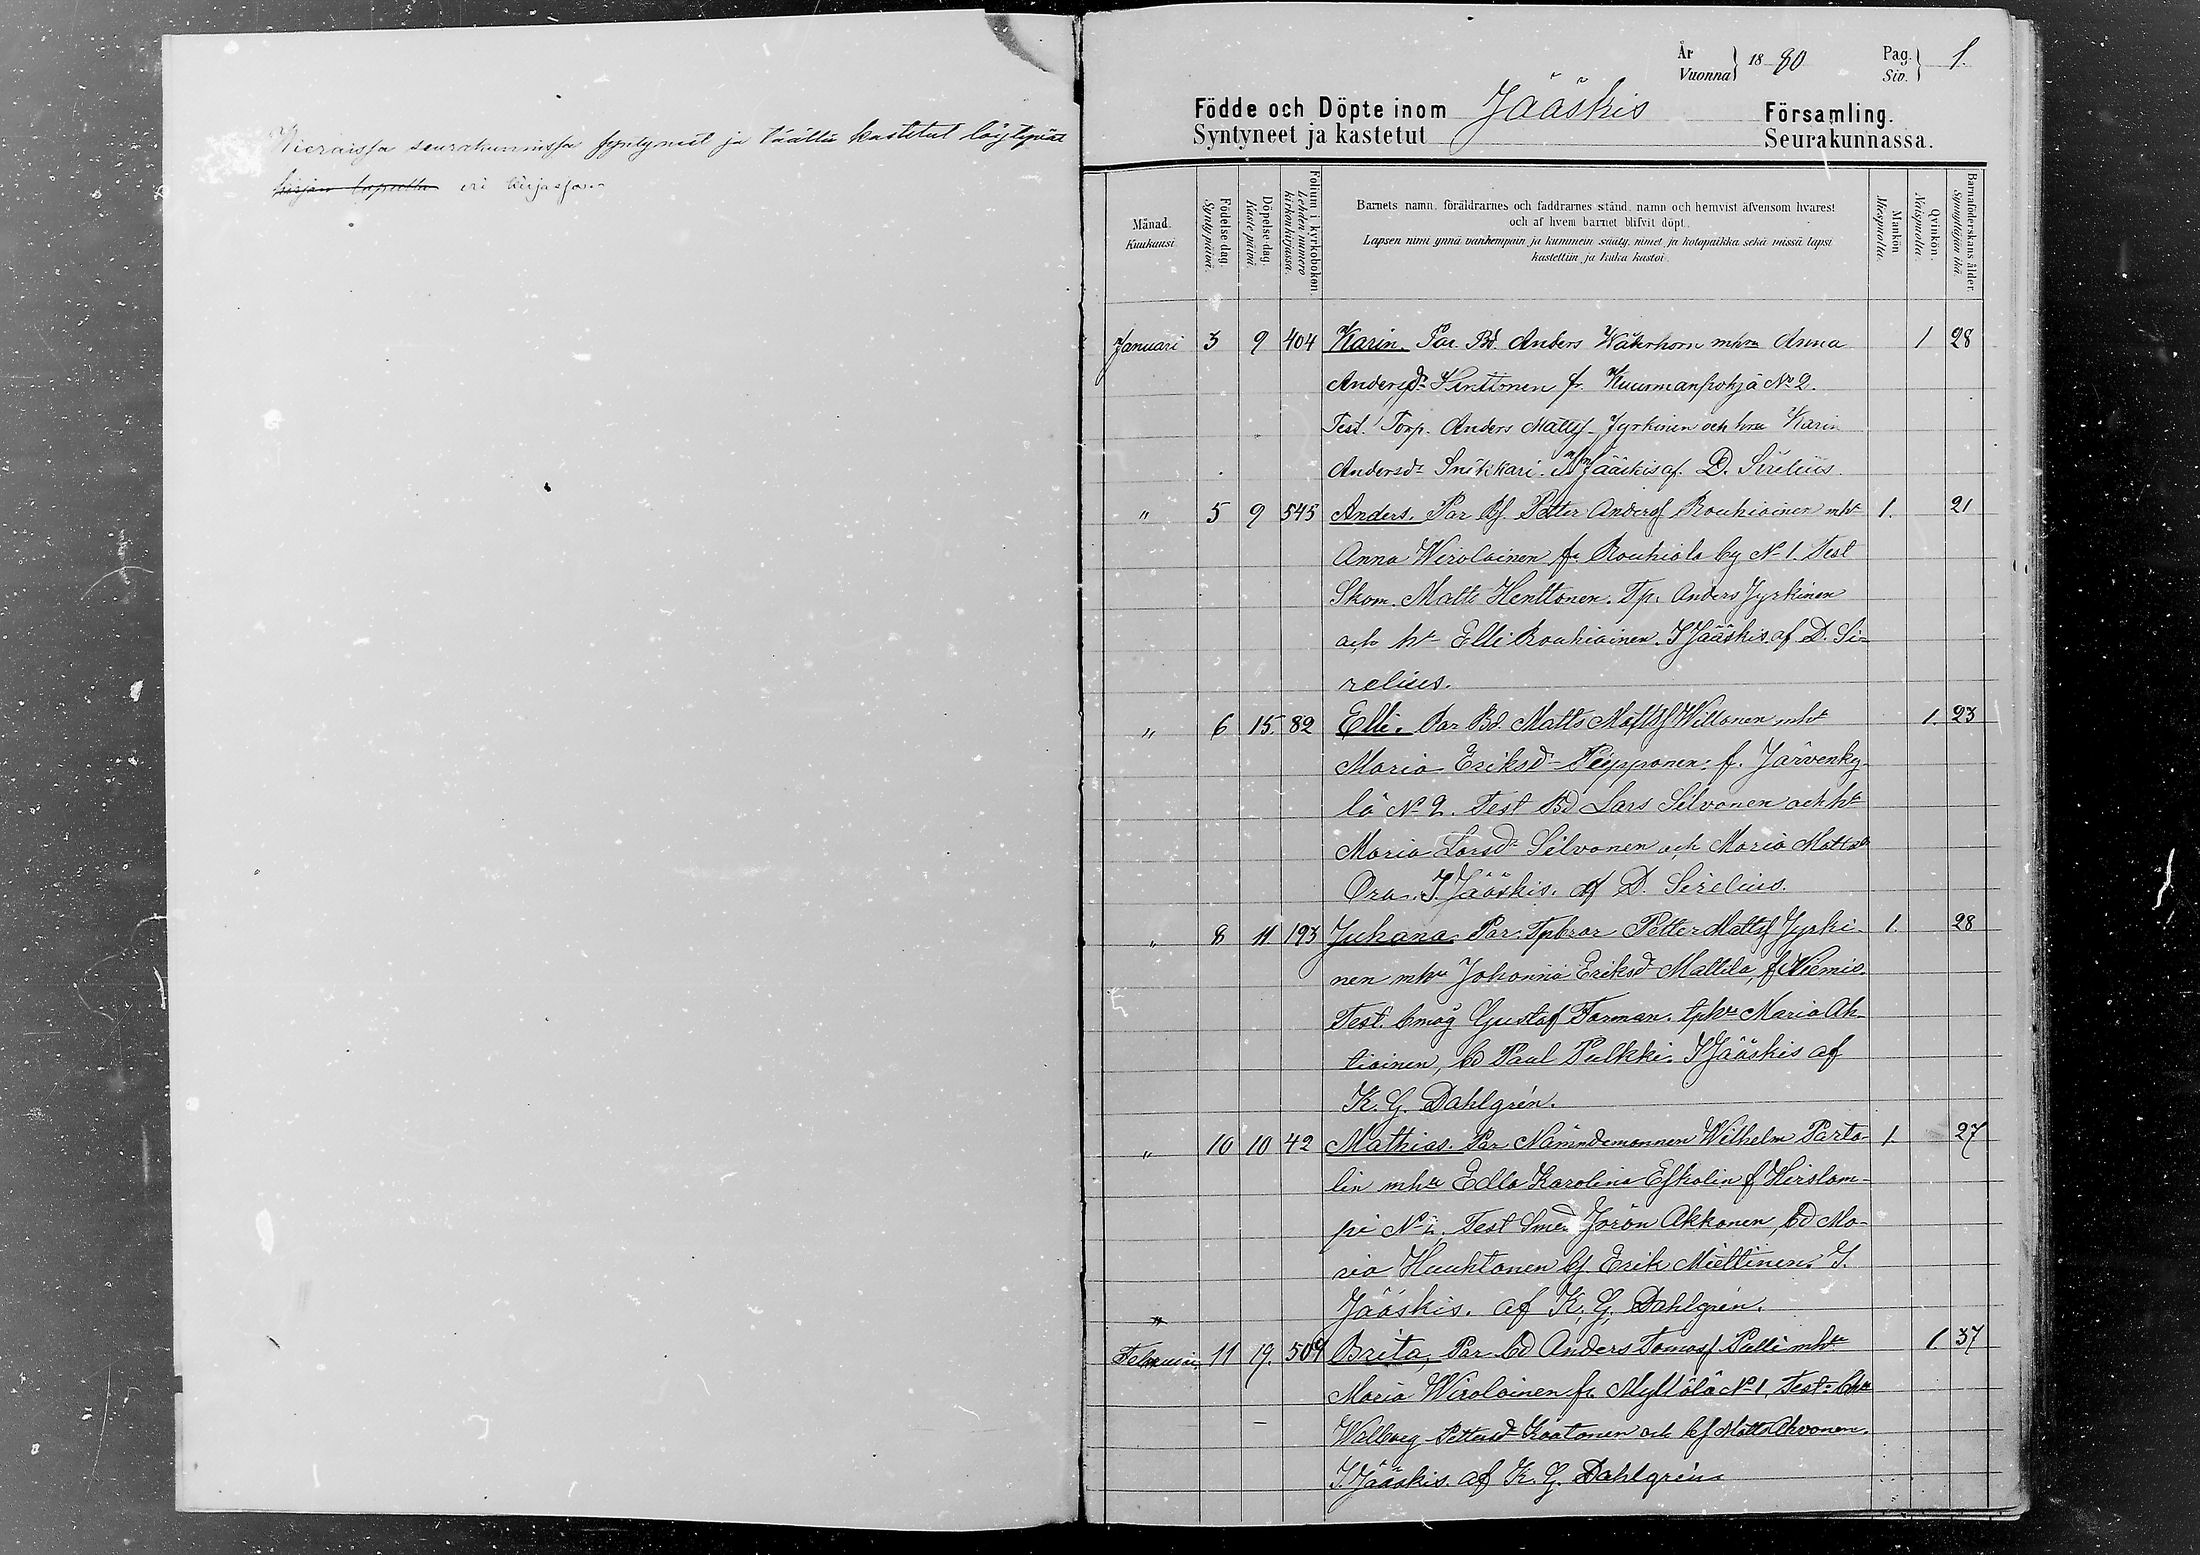 Wieraissa seurakunnissa syntyneet ja täällä kastetut löytyvät
kirjan lopulla eri kirjassa.
År
Vuonna } 1880
Pag.
Siv. } 1.
Födde och Döpte inom Jääskis Församling.
Syntyneet ja kastetut Seurakunnassa.
Månad.
Kuukausi
Födelse dag.
Synty päivä.
Döpelse dag.
Kaste päivä.
Folium i kyrkoboken.
Lehden numero kirkonkirjassa.
Barnets namn, föräldrarnes och faddrarnes stånd, namn och hemvist äfvensom hvarest
och af hvem barnet blifvit döpt.
Lapsen nimi ynnä vanhempain ja kummein sääty, nimet ja kotopaikka sekä missä lapsi
kastettiin ja kuka kastoi.
Mankön.
Miespuolta.
Qvinkön.
Naispuolta.
Barnaföderskans ålder.
Synnyttäjän ikä.
Januari 3 9 404 Karin. Par. Bd. Anders mhru Anna 1 28
Andersdr Henttonen fr. Kuurmanpohja No 2.
Test. Torp. Anders Matts Jyrkinen och hru Karin
Andersdr Snikkari. I Jääskis af D. Sirelius.
" 5 9 545 Anders. Par Bs. Petter Andersf Rouhiainen mhr 1. 21
Anna Wirolainen fr. Rouhiala by No 1. Test
Skom. Matts Henttonen. Tp. Anders Jyrkinen
och hr Elli Rouhiainen. I Jääskis af D. Si-
relius.
" 6 15. 82 Elli. Par Bd. Matts Mattsf Willonen mhr 1. 23
Maria Eriksdr Sepponen: f. Järvenky-
lä No 2. Test Bd Lars Silvonen och hr
Maria Larsdr Silvonen och Maria Mattsdr
Ora. I Jääskis. af D. Sirelius.
" 8 11 193 Juhana. Par. Tpbror Petter Mattsf Jyrki- 1. 28
nen mhr Johanna Eriksdr Mattila, f. Niemis.
Test. bmåg Gustaf Forman. tphr Maria Ah-
tiainen, bd Paul Pulkki. I Jääskis af
K. G. Dahlgrén.
" 10 10 42 Mathias. Par Nämndemannen Wilhelm Parta- 1. 27
lin mhr Edla Karolina Eskolin f Hirslam-
pi No 2. Test Smed Jöran Akkanen, bd Ma-
ria Huuhtanen bs. Erik Miettinen. I
" Jääskis. af K. G. Dahlgrén.
Februari 11 19. 509 Brita. Par bd Anders Tomasf Pälli mhr 1. 37
Maria Wirolainen fr. Myllölä No 1. Test. bhr
Walborg Pettersdr Kaatonen och bs Matts Ahvonen.
I Jääskis. af K. G. Dahlgrén.